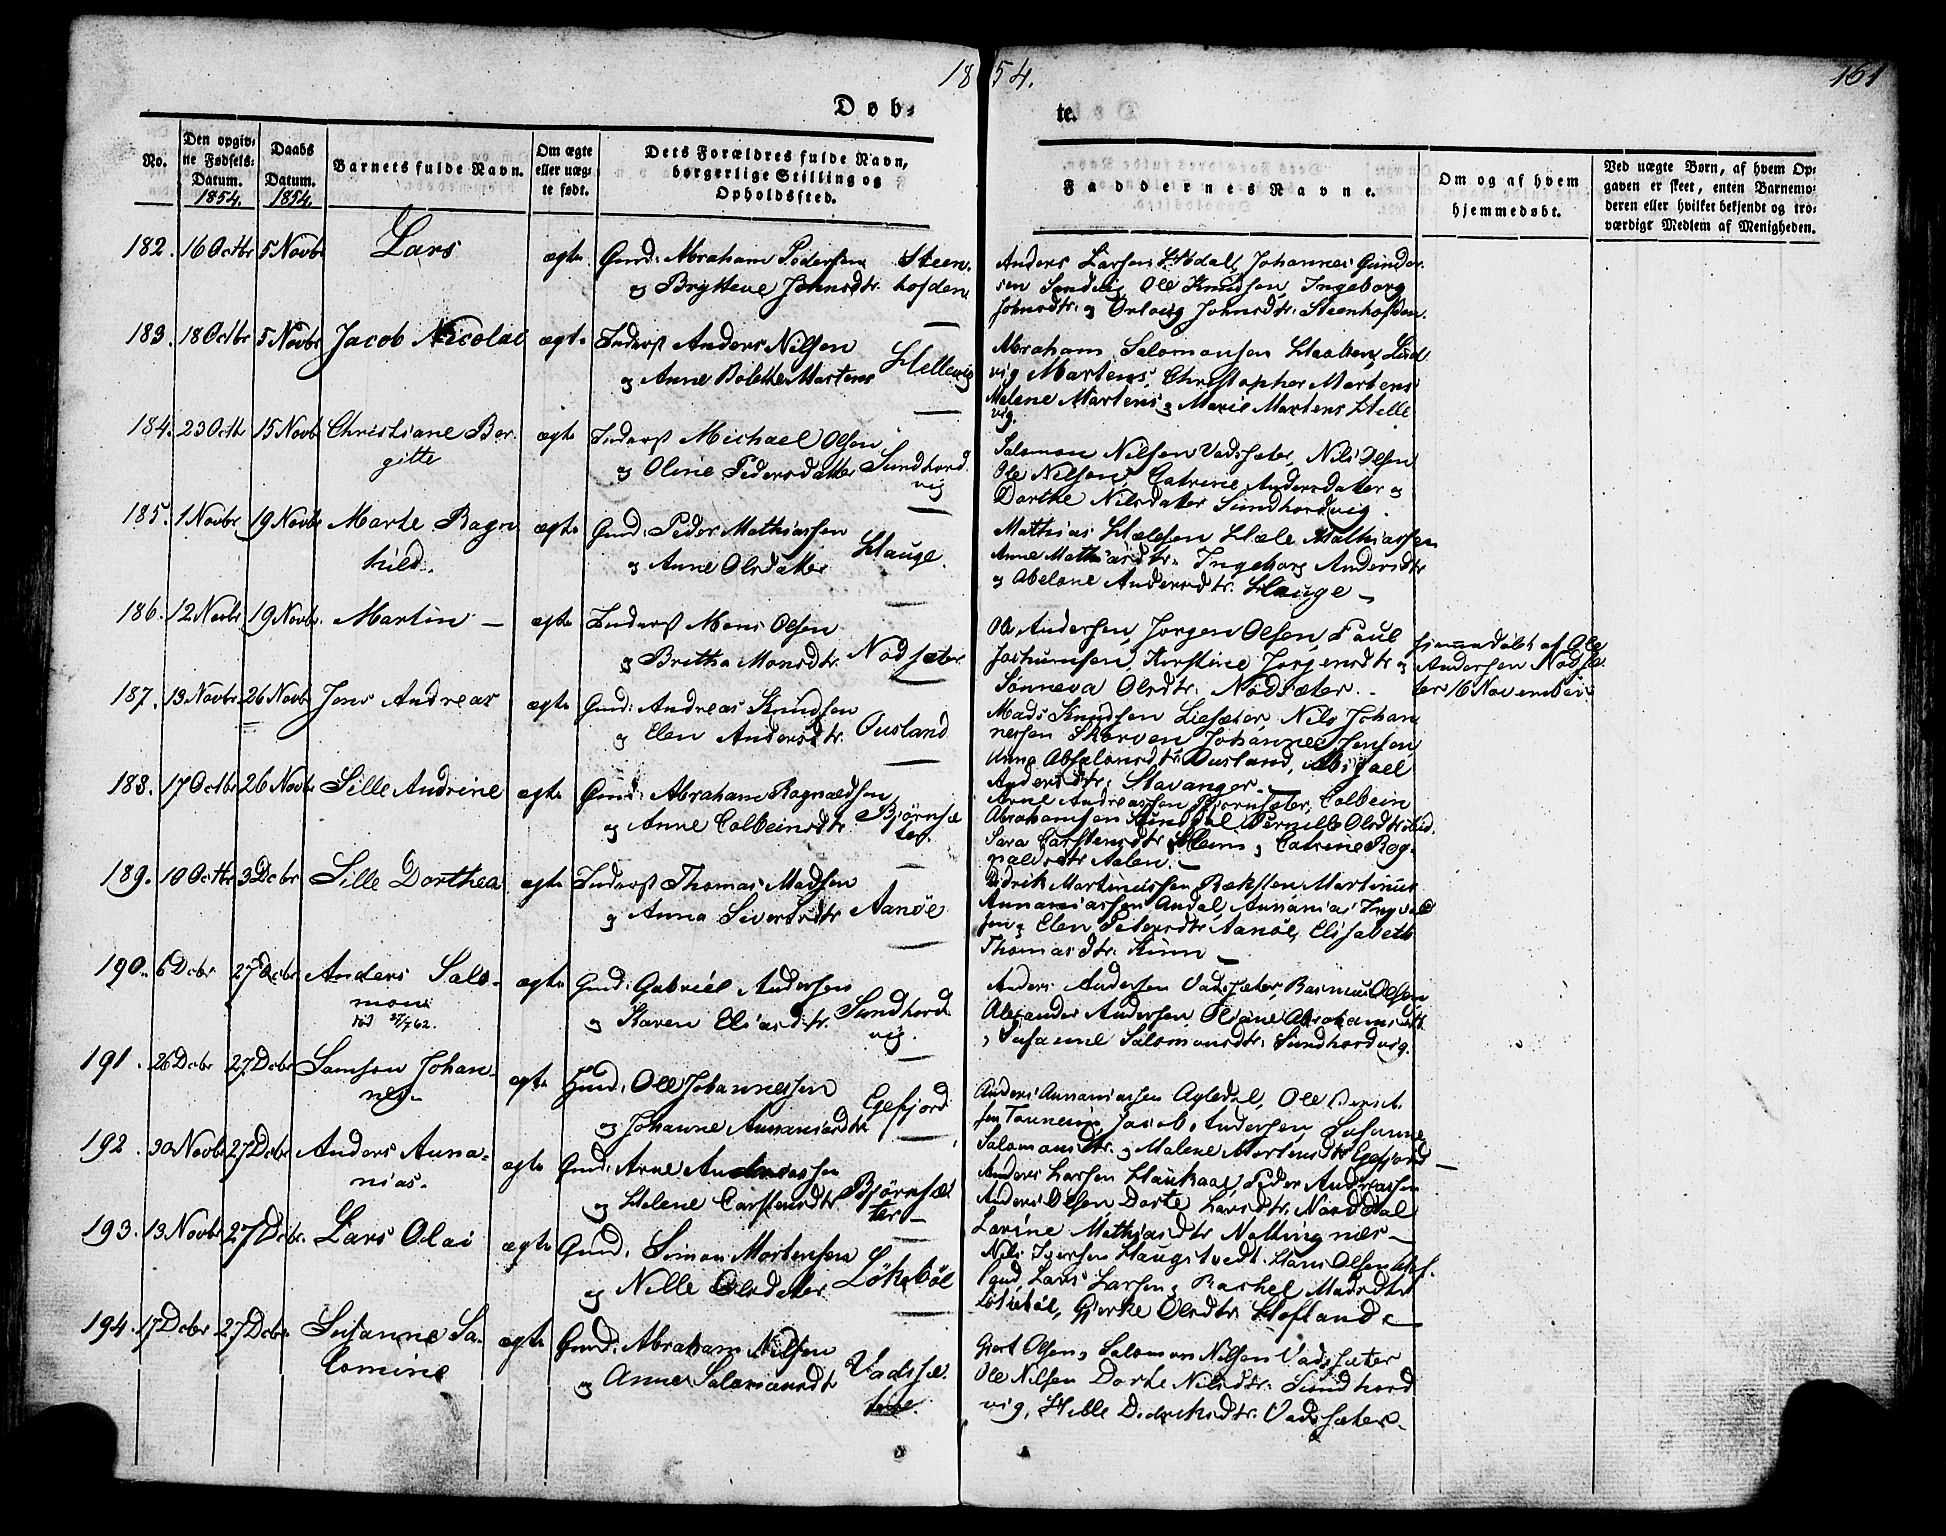 1854.
161
Døbte.
No.
Den opgivne Fødsels-Datum. 1854.
Daabs Datum. 1854.
Barnets fulde Navn.
Om ægte eller uægte født.
Dets Forældres fulde Navn, borgerlige Stilling og Opholdssted.
Faddernes Navne.
Om og af hvem hjemmedøbt.
Ved uægte Børn, af hvem Opgaven er skeet, enten Barnemoderen eller hvilket bekjendt og troværdigt Medlem af Menigheden.
182. 16 Octbr 5 Novbr Lars ægte Gmd: Abraham Pedersen Steen-
og Brytteve Johnsdtr. hofden
Anders Larsen Johannes Gunder
sen Sandvig Ole Knudsen, Ingeborg
Johnsdtr. og Johnsdtr. Steenhofden.
183. 18 Octbr 5 Novbr Jacob Nicolai ægte Inderst Anders Nilsen Hellevig
og Anne Bolethe Martens
Abraham Salomonsen Lud
vig Martens, Christopher Martens
Malene Martens og Marie Martens Helle
vig.
184. 23 Octbr 15 Novb Christiane Ber- ægte Inderst Michael Olsen
gitte og Oline Pedersdatter Sundhord
vig
Salomon Nilsen Vadsæter, Nils Olsen
Ole Nilsen, Catrine Andersdater og
Dorthe Nilsdater Sundhordvig.
185. 1 Novbr 19 Novbr Marte Ragn ægte Gmd: Peder Mathiassen Hauge.
hild. og Anne Olsdatter
Mathias Hælesen Hæle Mathiassen
Anne Mathiasdtr. Ingeborg Andersdtr
og Abelone Andersdtr. Hauge
186. 12 Novbr 19 Novbr. Martin ægte Inderst Mons Olsen
og Britha Monsdtr. Nodsæter
Ole Andersen, Jørgen Olsen, Paul
Jochumsen, Kirstine Jørgensdtr og
Sønneva Olsdtr. Nodsæter.
hjemmedøbt af Ole
Andersen Nodsæ
ter 16 November
187. 13 Novbr 26 Novbr Jens Andreas ægte Gmd: Andreas Knudsen
og Elen Andersdtr. Ousland
Mads Knudsen Liesæter, Nils Johan
nessen Skorven Johannes Jensen
Anna Absalonsdtr. Ousland, Abigael
Andersdtr. Stavanger.
188. 17 Octbr 26 Novbr Sille Andrine ægte Gmd: Abraham Ragnaldsen Bjørnsæ
og Anne Colbeinsdtr. ter.
Arne Andreassen Bjørnsæter, Colbein
Abrahamsen Pernille Olsdtr
Sara Carstensdtr. og Catrine Rag-
naldsdtr Aalen.
189. 10 Octbr 3 Dcbr Sille Dorthea ægte Inderst Thomas Madsen
og Anna Sivertsdtr Aanøe
Didrik Martinussen Reksten Martinus
Annaniassen Andal, Annanias Ingvald
sen, Elen Petersdtr Aanøe, Elisabeth
Thomasdtr. Kinn
190. 6 Dcbr 27 Dcbr Anders Salo- ægte Gmd: Gabriel Andersen Sundhord
mon og Karen Eliasdtr. vig.
død 27/7 62.
Anders Andersen Vadsæter, Rasmus Olsen,
Alexander Andersen, Oliane Abrahamsdtr
Susanne Salomonsdtr. Sundhordvig.
191. 26 Dcbr 27 Dcbr Samson Johan- ægte Gmd: Ole Johannessen Gefjord
nes og Johanne Annaniasdtr
Anders Annaniassen Ole
sen Jacob Andersen Susanne
Salomonsdtr. og Malene Martensdtr Gefjord
192. 30 Novbr 27 Dcbr Anders Anna- ægte Gmd: Arne Andreassen Bjørnsæ
nias. og Helene Carstensdtr ter
Anders Larsen Haukaas, Peder Andreassen
Anders Olsen, Dorte Larsdtr. Norddal
Lavine Mathiasdtr
193. 13 Novbr 27 Dcbr. Lars Olai ægte Gmd: Simon Mortensen
og Nille Olsdater Løkebøe
Nils Iversen Haugstvedt Hans Olsen
Lars Larsen, Rachel Madsdtr
Løkebøe, Gjerke Olsdtr. Hofland
194. 17 Dcbr 27 Dcbr. Susanne Sa- ægte Gmd: Abraham Nilsen Vadsæ-
lomine og Anne Salomonsdtr ter.
Gjert Olsen, Salomon Nilsen Vadsæter
Ole Nilsen Dorte Nilsdtr. Sundhord
vig, Hille Didriksdtr. Vadsæter.